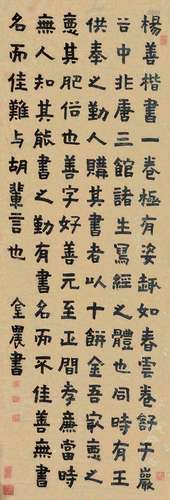 楊善楷書一卷極有姿趣如春雲卷舒于巖
谷中非唐三館諸生寫經之體也同時有王
供奉之勤人購其書者以十餅金吾厭惡之
惡其肥俗也善字好善元至正間孝廉當時
無人知其能書之勤有書名而不佳善無書
名而佳難與胡輩言也 金農書